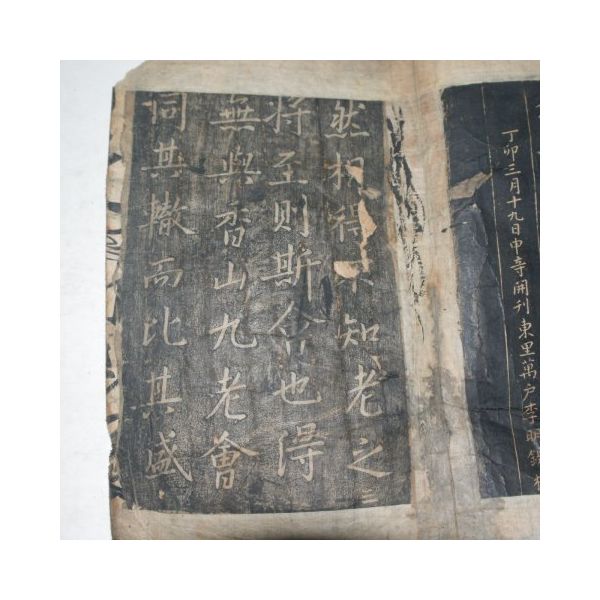 丁卯三月十九日申時開刊東里萬户李明錫
然相得不知老之
將至則斯會也得
無與香山九老會
同其轍而比其盛